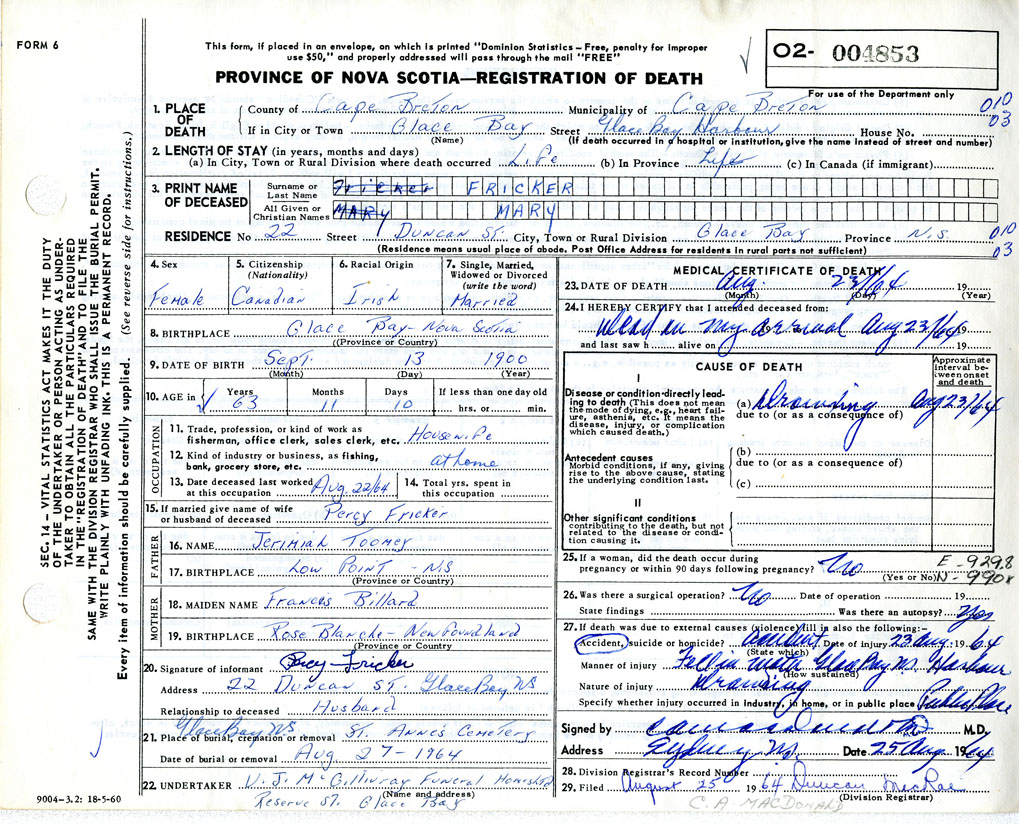 FORM 6
This form, if placed in an envelope, on which is printed "Dominion Statistics—Free, penalty for improper
use $50," and properly addressed will pass through the mail "FREE"
O2- 004853
For use of the Department only
PROVINCE OF NOVA SCOTIA—REGISTRATION OF DEATH
1. PLACE OF DEATH County of Cape Breton Municipality of Cape Breton 010
If in City or Town Glace Bay Street Glace Bay Harbour House No. 03
(Name) (If death occurred in a hospital or institution, give the name instead of street and number)
2. LENGTH OF STAY (in years, months and days)
(a) In City, Town or Rural Division where death occurred Life (b) In Province Life (c) In Canada (if immigrant)
3. PRINT NAME OF DECEASED Surname or Last Name Fricker FRICKER
All Given or Christian Names MARY MARY
RESIDENCE No 22 Street DUNCAN ST. City, Town or Rural Division Glace Bay Province N.S. 010
(Residence means usual place of abode. Post Office Address for residents in rural parts not sufficient) 03
4. Sex Female
5. Citizenship (Nationality) Canadian
6. Racial Origin Irish
7. Single, Married, Widowed or Divorced (write the word) Married
8. BIRTHPLACE Glace Bay - Nova Scotia
(Province or Country)
9. DATE OF BIRTH Sept. 13 1900
(Month) (Day) (Year)
10. AGE in Years 63 Months 11 Days 10 If less than one day old hrs. or min.
OCCUPATION
11. Trade, profession, or kind of work as
fisherman, office clerk, sales clerk, etc. Housewife
12. Kind of industry or business, as fishing,
bank, grocery store, etc. at home
13. Date deceased last worked at this occupation Aug. 22/64
14. Total yrs. spent in this occupation
15. If married give name of wife
or husband of deceased Percy Fricker
FATHER
16. NAME Jerimiah Toomey
17. BIRTHPLACE Low Point - NS
(Province or Country)
MOTHER
18. MAIDEN NAME Frances Billard
19. BIRTHPLACE Rose Blanche - Newfoundland
(Province or Country)
20. Signature of informant Percy Fricker
Address 22 Duncan ST. Glace Bay NS
Relationship to deceased Husband
21. Place of burial, cremation or removal Glace Bay NS ST. Anne's Cemetery
Date of burial or removal Aug 27 - 1964
22. UNDERTAKER V. J. McGillivray Funeral Home Ltd
(Name and address)
Reserve ST. Glace Bay
MEDICAL CERTIFICATE OF DEATH
23. DATE OF DEATH Aug. 23/64 19
(Month) (Day) (Year)
24. I HEREBY CERTIFY that I attended deceased from:
Dead on my arrival Aug 23/64 19
and last saw h alive on 19
CAUSE OF DEATH
Approximate interval between onset and death
I
Disease or condition directly leading to death (This does not mean the mode of dying, e.g., heart failure, asthenia, etc. It means the disease, injury, or complication which caused death.)
(a) Drowning Aug 23/64
due to (or as a consequence of)
Antecedent causes
Morbid conditions, if any, giving rise to the above cause, stating the underlying condition last.
(b)
due to (or as a consequence of)
(c)
II
Other significant conditions
contributing to the death, but not related to the disease or condition causing it.
25. If a woman, did the death occur during
pregnancy or within 90 days following pregnancy? No E-929.8
(Yes or No) N-990x
26. Was there a surgical operation? No Date of operation 19
State findings Was there an autopsy? Yes
27. If death was due to external causes (violence) fill in also the following:-
Accident, suicide or homicide? Accident Date of injury 23 Aug. 1964
(State which)
Manner of injury Fell in water Glace Bay NS. Harbour
(How sustained)
Nature of injury Drowning
Specify whether injury occurred in Industry, in home, or in public place Public Place
Signed by M.D.
Address Sydney NS. Date 25 Aug 1964
28. Division Registrar's Record Number
29. Filed August 25 1964 Duncan MacRae
(Division Registrar)
C. A. MACDONALD
SEC. 14—VITAL STATISTICS ACT MAKES IT THE DUTY
OF THE UNDERTAKER OR PERSON ACTING AS UNDER-
TAKER TO OBTAIN ALL THE PARTICULARS REQUIRED
IN THE "REGISTRATION OF DEATH" AND TO FILE THE
SAME WITH THE DIVISION REGISTRAR WHO SHALL ISSUE THE BURIAL PERMIT.
WRITE PLAINLY WITH UNFADING INK. THIS IS A PERMANENT RECORD.
Every item of information should be carefully supplied. (See reverse side for instructions.)
9004-3.2: 18-5-60